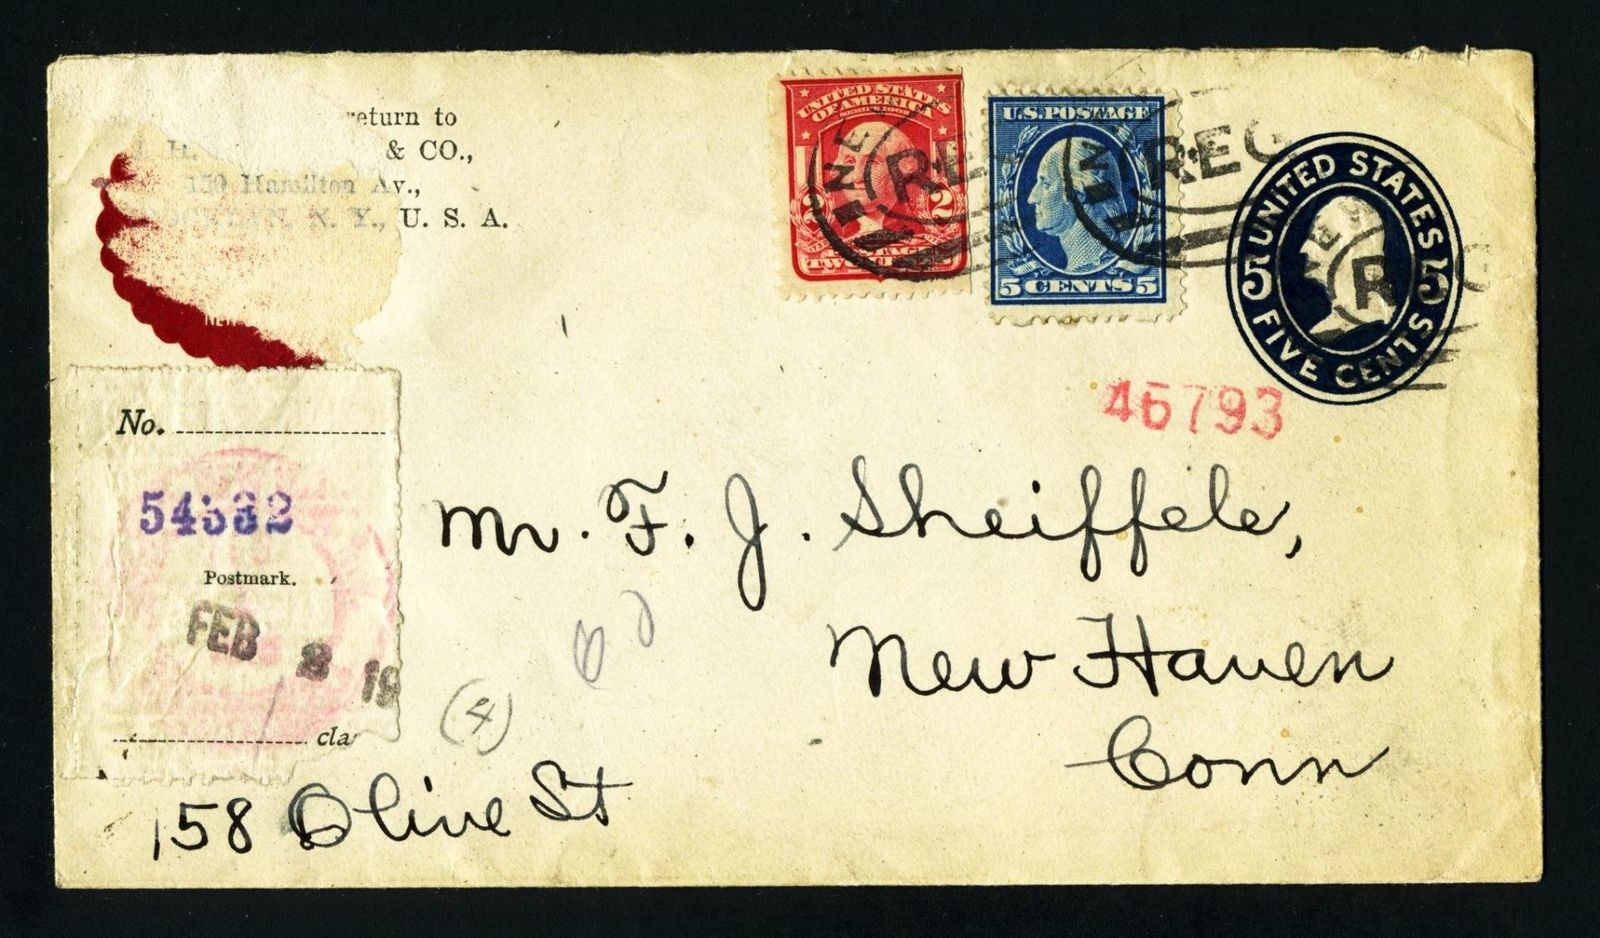 return to
& CO.,
Hamilton Av.,
N. Y., U. S. A.
UNITED STATES
OF AMERICA
2 2
TWO
U.S. POSTAGE
5 CENTS 5
REG
UNITED STATES
5 5
FIVE CENTS
46793
No.
54532
Postmark.
FEB 2 19
Mr. F. J. Sheiffele,
New Haven
Conn
(4)
158 Olive St